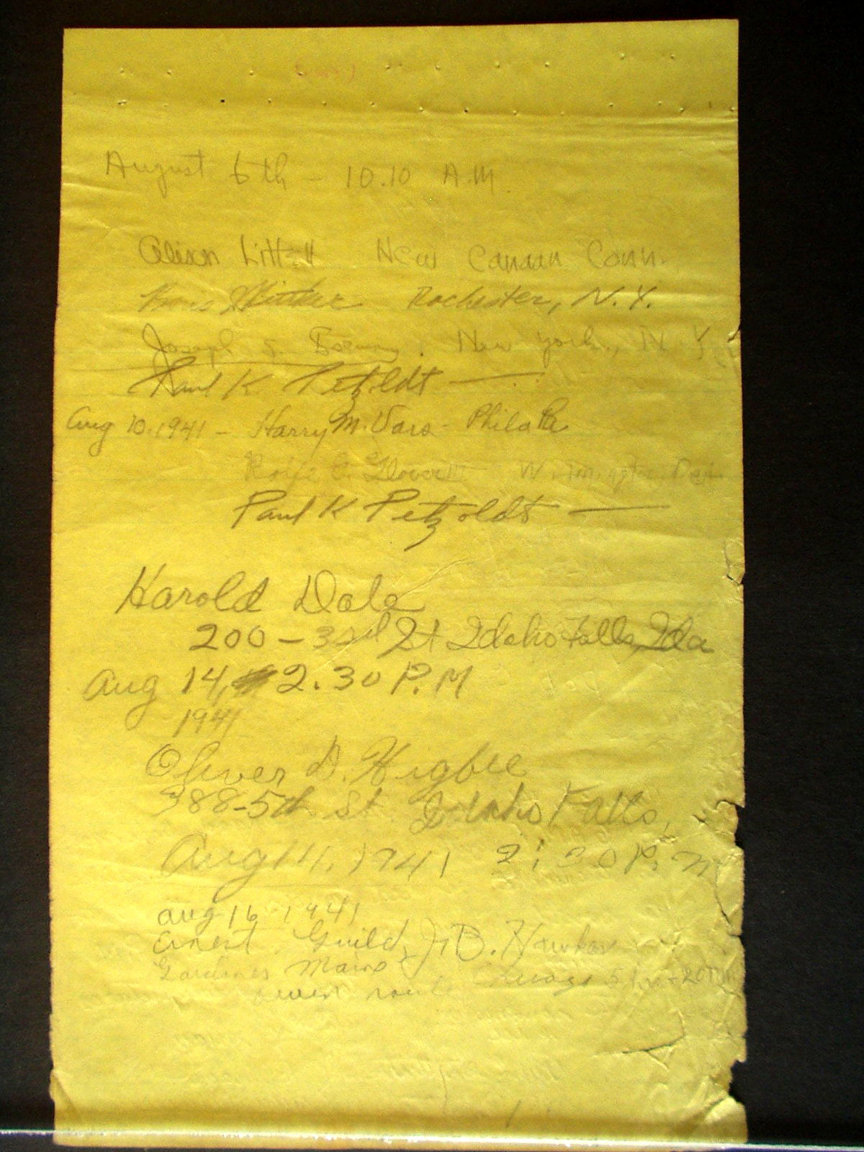 August 6th - 10.10 A.M.
Alison Littell New Canaan Conn.
Rochester, N.Y.
Joseph New York, N.Y.
Paul K. Petzoldt —
Aug 10. 1941 - Harry M. Vars - Phila Pa
Rolfe Glover Wilmington, Del.
Paul K Petzoldt —
Harold Dale
200 - 3rd St Idaho Falls, Ida
Aug 14, 2.30 P.M
1941
Oliver D. Higbee
388-5th St Idaho Falls,
Aug 14, 1941 2:30 P.M
aug 16 1941
Ernest Guild, Jr
route Chicago